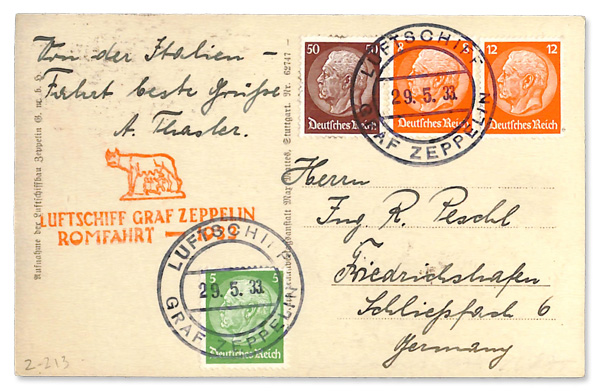 Von der Italien –
Fahrt beste Grüsse
A. Thasler.
LUFTSCHIFF GRAF ZEPPELIN
ROMFAHRT — 1933
Aufnahme der Luftschiffbau Zeppelin G. m. b. H.
Stuttgart. Nr. 62747
50
Deutsches Reich
12
Deutsches Reich
12 12
Deutsches Reich
LUFTSCHIFF
29.5.33
GRAF ZEPPELIN
Herrn
Ing. R. Peschl
Friedrichshafen
Schliessfach 6
Germany
LUFTSCHIFF
29.5.33
GRAF ZEPPELIN
5 5
Deutsches Reich
2-213